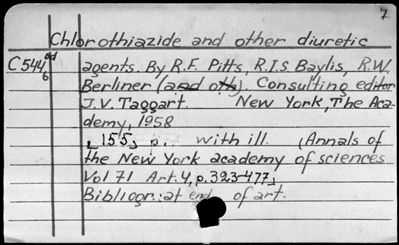 7
Chlorothiazide and other diuretic
C544 od 6 agents. By R.F. Pitts, R.I.S. Baylis, R.W.
Berliner (and oth). Consulting editor
J.V. Taggart. New York, The Aca-
demy, 1958
[155] p. with ill. (Annals of
the New York academy of sciences
Vol 71 Art. 4, p. 323-477)
Bibliogr.: at end of art.